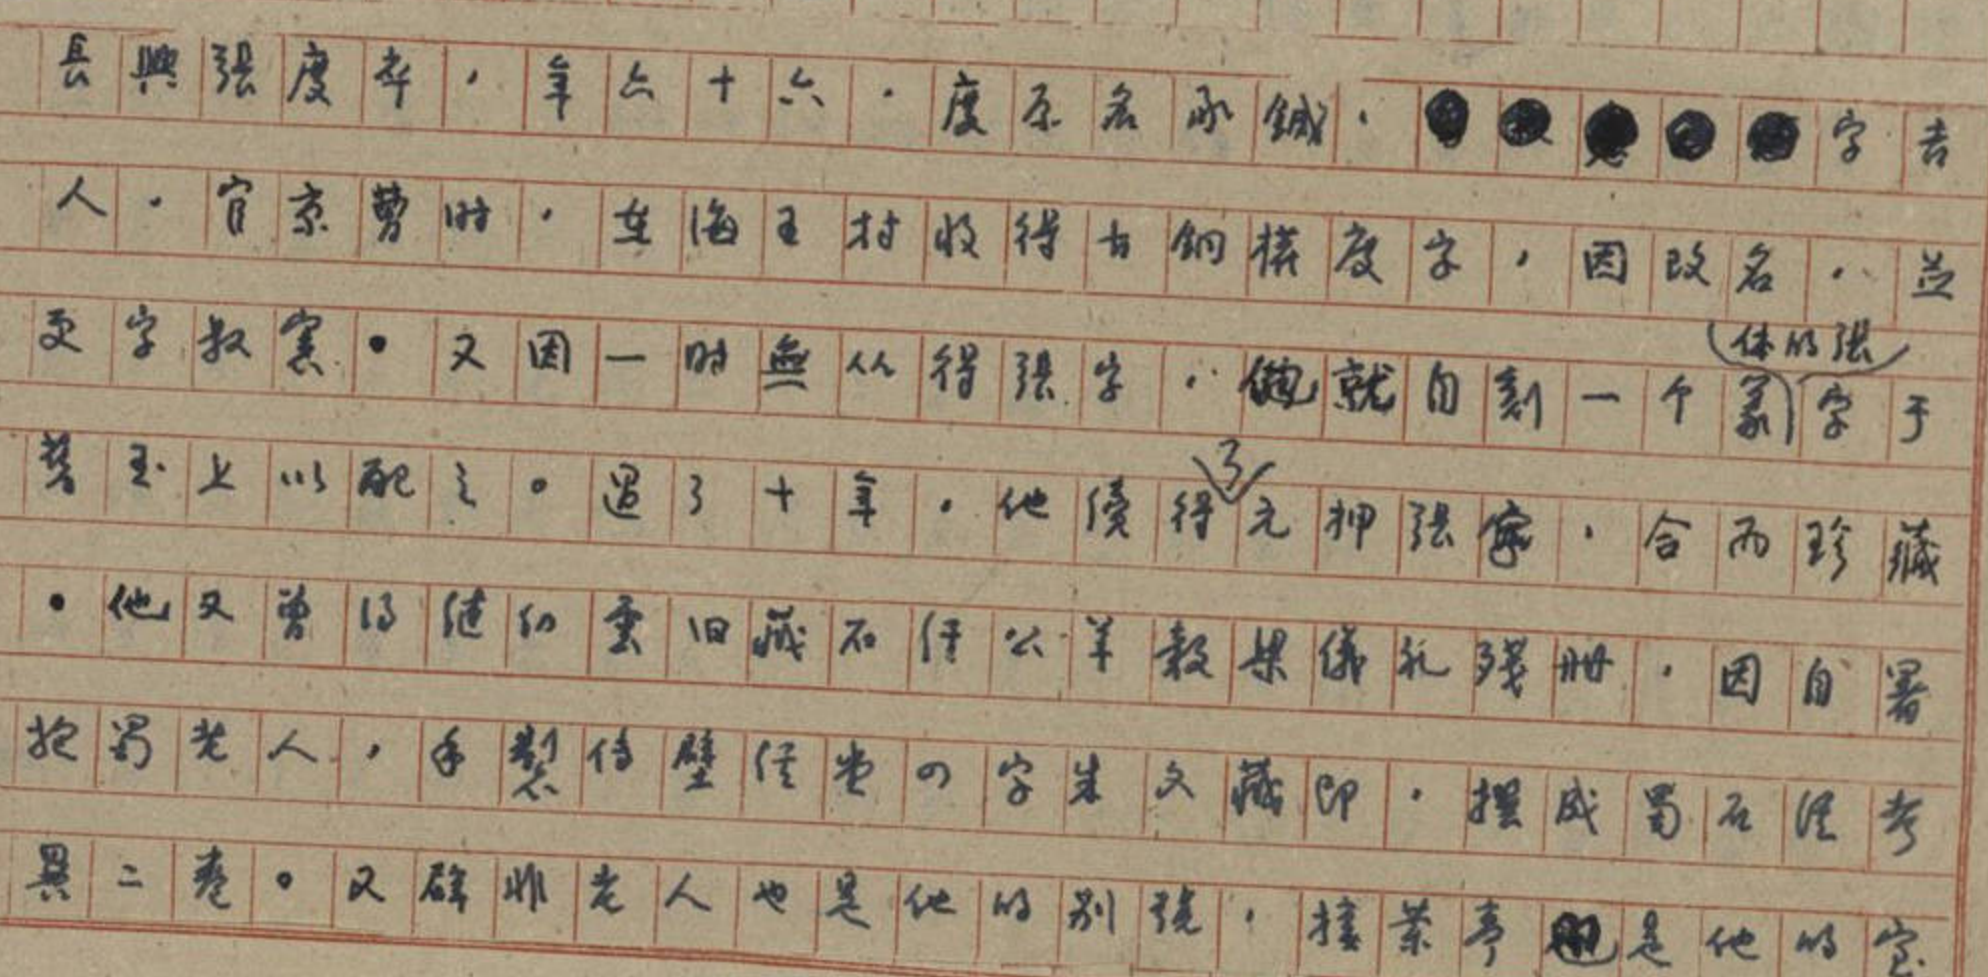 長興張度卒，年六十六。度原名承鋮，字吉
人。官京曹时，在海王村收得古銅㩁度字，因改名，並
更字叔憲。又因一时無从得張字，他就自刻一个篆体的張字于
舊玉上以配之。過了十年，他續得了元押張字，合而珍藏
。他又曾得繼幼雲旧藏石經公羊穀梁儀礼殘册，因自署
抱蜀老人，手製傳壁經堂四字朱文藏印，撰成蜀石經考
異二卷。又辟非老人也是他的别號，接葉亭是他的室